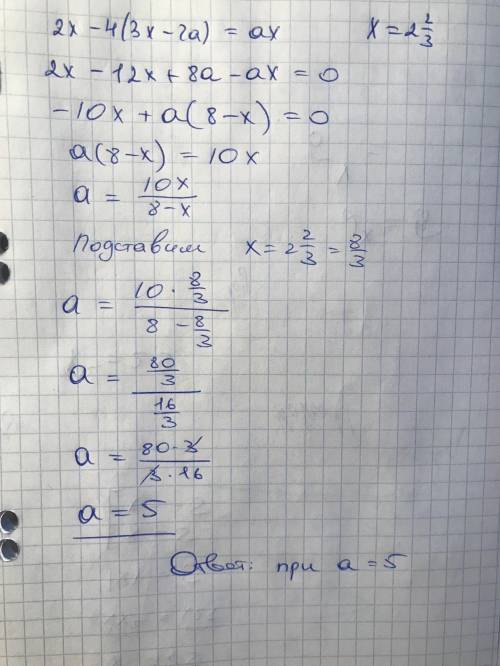 2x - 4(3x - 2a) = ax   x = 2 2/3
2x - 12x + 8a - ax = 0
-10x + a(8 - x) = 0
a(8 - x) = 10x
a = 10x / (8 - x)
Подставим x = 2 2/3 = 8/3
a = (10 · 8/3) / (8 - 8/3)
a = (80/3) / (16/3)
a = (80 · 3) / (3 · 16)
a = 5
Ответ: при a = 5